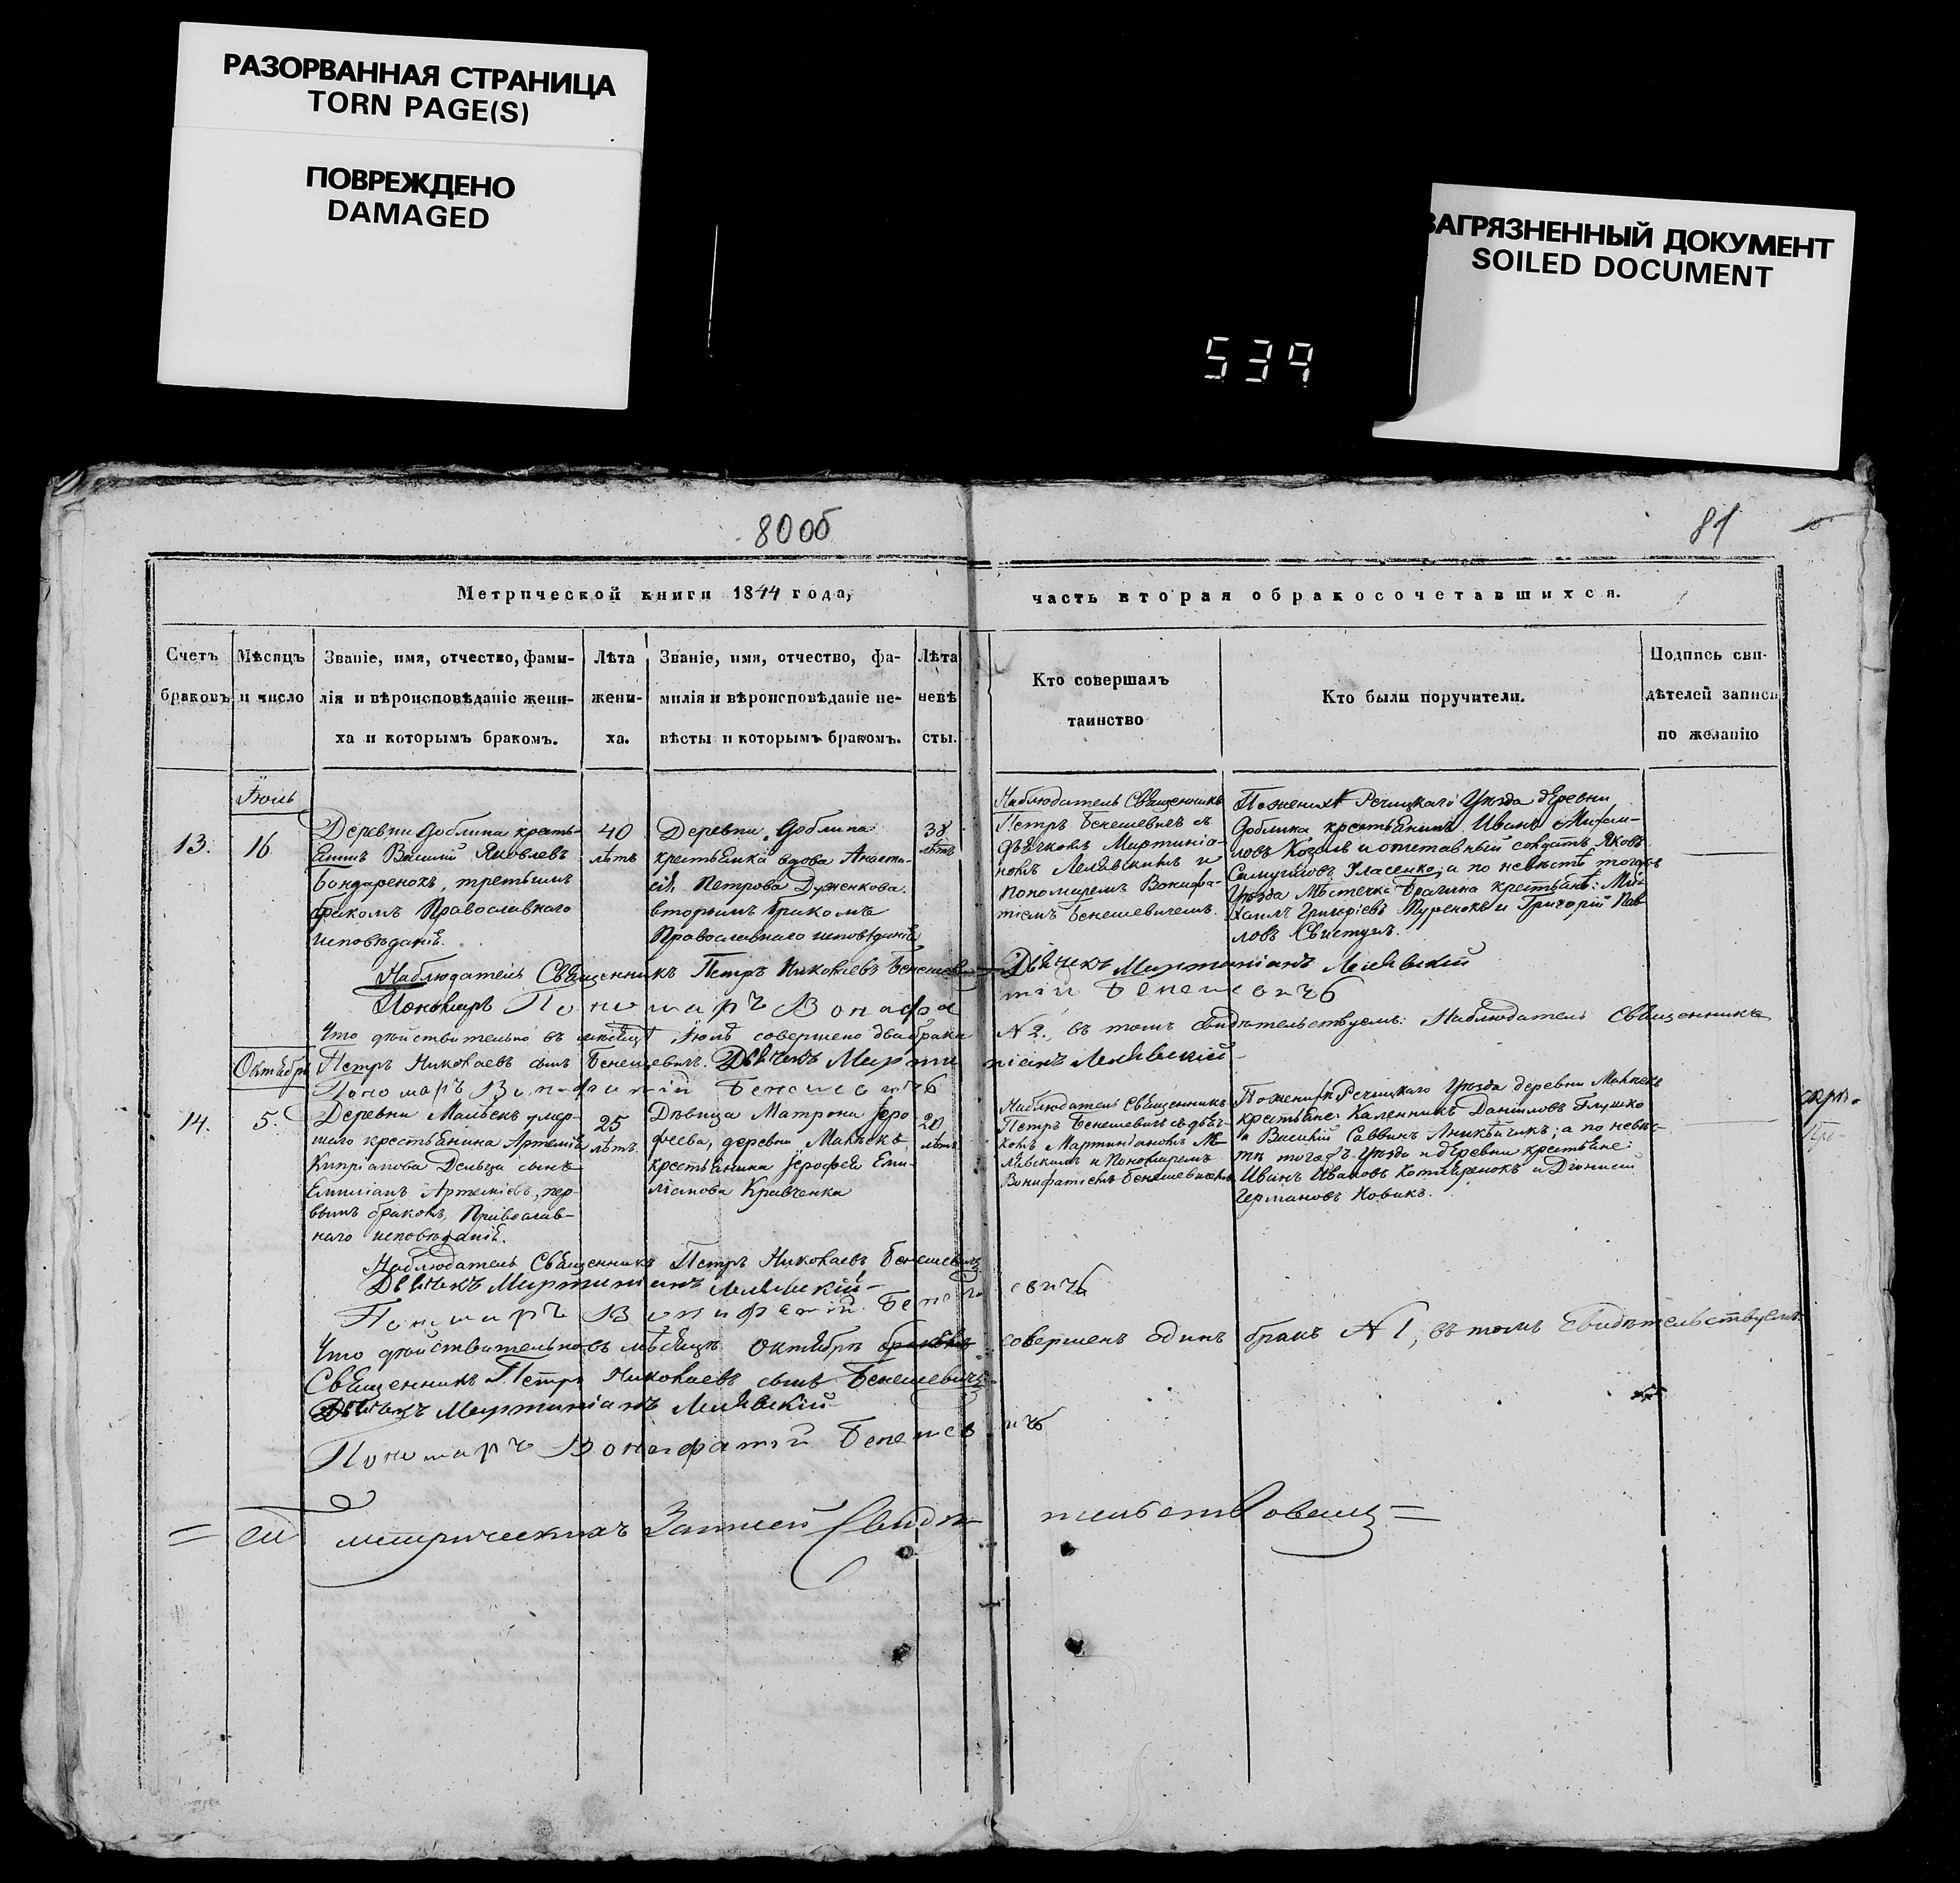 РАЗОРВАННАЯ СТРАНИЦА
TORN PAGE(S)
ПОВРЕЖДЕНО
DAMAGED
ЗАГРЯЗНЕННЫЙ ДОКУМЕНТ
SOILED DOCUMENT
539
80об
81
Метрической книги 1844 года,
часть вторая обракосочетавшихся.
Счетъ
браковъ
Мѣсяцъ
и число
Званіе, имя, отчество, фами-
лія и вѣроисповѣданіе жени-
ха и которымъ бракомъ.
Лѣта
жени-
ха.
Званіе, имя, отчество, фа-
милія и вѣроисповѣданіе не-
вѣсты и которымъ бракомъ.
Лѣта
невѣ
сты.
Кто совершалъ
таинство
Кто были поручители.
Подпись сви-
дѣтелей записи
по желанію
Іюль
13.
16
Деревни Доблина кресть-
янинъ Василій Яковлевъ
Бондаренокъ, третьимъ
бракомъ Православнаго
исповѣданія.
40
лѣтъ
Деревни Доблина
крестьянка вдова Анаста-
сія Петрова Дуженкова
вторымъ бракомъ
Православнаго исповѣданія
38
лѣтъ
Наблюдатель Священникъ
Петръ Бенешевичъ съ
дьячкомъ Мартинія-
номъ Лелявскимъ и
пономаремъ Вонифа-
тіемъ Бенешевичемъ.
По женихѣ Речицкаго Уѣзда деревни
Доблина крестьянинъ Иванъ Михаи-
ловъ Козелъ и отставный солдатъ Яковъ
Самуиловъ Уласенко, а по невѣстѣ тогожъ
Уѣзда Мѣстечка Брагина крестьяне: Ми-
хаилъ Григоріевъ Туренокъ и Григорій Пав
ловъ Свистунъ.
Наблюдатель Священникъ Петръ Николаевъ Бенешевичъ
Дьячекъ Мартиніанъ Лелявскій
Пономарь Пономарь Вонифа
тій Бенешевичъ
Что дѣйствительно въ мѣсяцѣ Іюлѣ совершено два брака
№ 2., въ томъ свидѣтельствуемъ: Наблюдатель Священникъ
Октябрь
Петръ Николаевъ сынъ Бенешевичъ. Дьячекъ Мартиніанъ Лелявскій
Пономарь Вонифатій Бенешевичъ
14.
5.
Деревни Малѣекъ умер-
шаго крестьянина Артемія
Кипріанова Дельца сынъ
Емиліанъ Артеміевъ, пер-
вымъ бракомъ, Православ-
наго исповѣданія.
25
лѣтъ
Дѣвица Матрона Іеро
феева, деревни Малѣекъ
крестьянина Іерофея Еми-
ліанова Кравченка
20
лѣтъ
Наблюдатель Священникъ
Петръ Бенешевичъ съ дьяч-
комъ Мартиніаномъ Ле-
лявскимъ и Пономаремъ
Вонифатіемъ Бенешевичемъ
По женихѣ Речицкаго Уѣзда деревни Малѣекъ
крестьяне: Каленникъ Даніиловъ Глушко
а Василій Саввинъ; а по невѣс-
тѣ тогожъ Уѣзда и деревни крестьяне:
Иванъ Ивановъ Котляренокъ и Діонисій
Германовъ Новикъ.
Наблюдатель Священникъ Петръ Николаевъ Бенешевичъ
Дьячекъ Мартиніанъ Лелявскій
Пономарь Вонифатій Бенешевичъ
Что дѣйствительно въ мѣсяцѣ Октябрѣ совершенъ одинъ бракъ № 1, въ томъ свидѣтельствуемъ
Священникъ Петръ Николаевъ сынъ Бенешевичъ
Дьячекъ Мартиніанъ Лелявскій
Пономарь Вонифатій Бенешевичъ
метрическихъ Записей Свидѣтельствовалъ